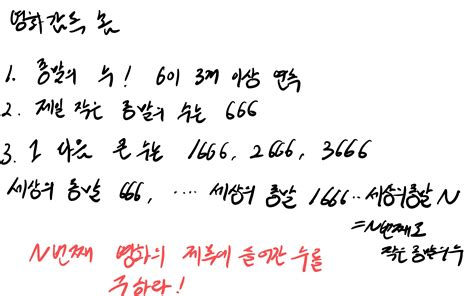 영화감독 숌
1. 종말의 수! 6이 3개 이상 연속
2. 제일 작은 종말의 수는 666
3. 그 다음 큰 수는 1666, 2666, 3666
세상의 종말 666, .... 세상의 종말 1666.. 세상의 종말 N
= N번째로
작은 종말의 수
N번째 영화의 제목에 들어간 수를
구하라!